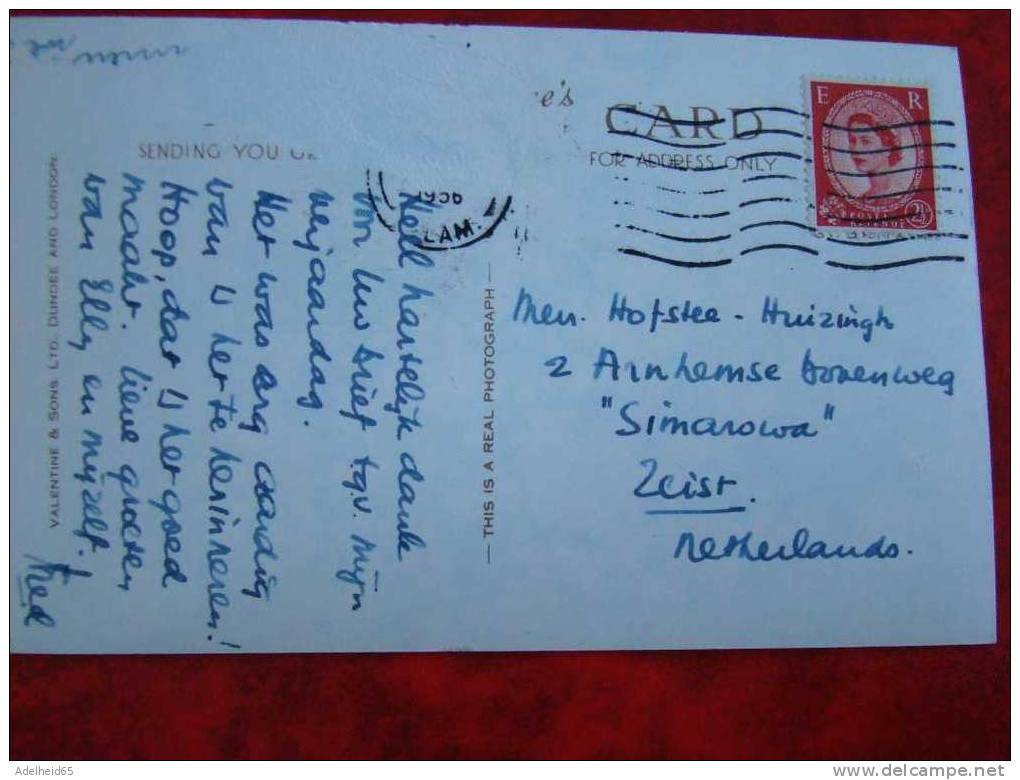 e's
CARD
FOR ADDRESS ONLY
E R
REVENUE
2½
1956
LAM.
SENDING YOU
Heel hartelijk dank
voor Uw brief t.g.v. mijn
verjaardag.
Het was erg aardig
van U het te herinneren!
Hoop, dat U het goed
maakt. lieve groeten
van Elly en mijzelf.
VALENTINE & SONS LTD. DUNDEE AND LONDON.
— THIS IS A REAL PHOTOGRAPH —
Mevr. Hofstee - Huizingh
2 Arnhemse bovenweg
"Simarowa"
Zeist.
Netherlands.
Adelheid65
delcampe.net